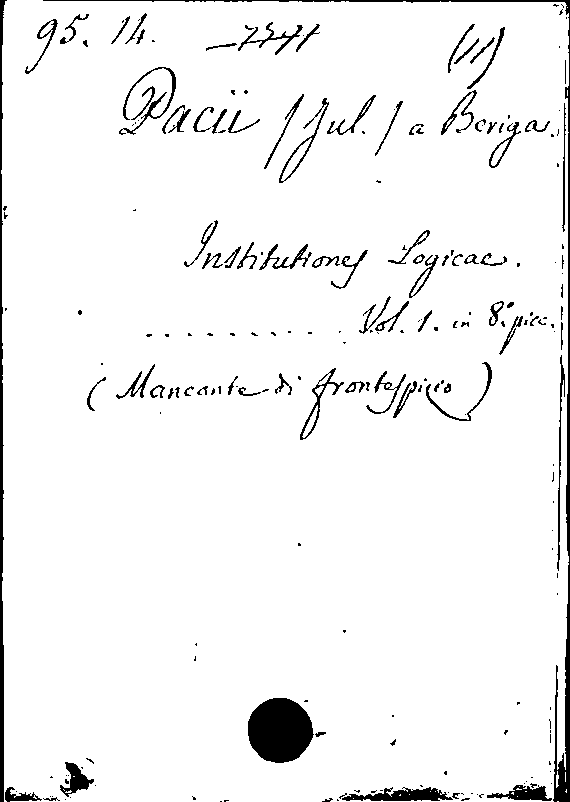 95. 14. (11)
Pacii /Jul./ a Beriga.
Institutiones Logicae.
. . . . . . . . . Vol. 1. in 8.° picc.
(Mancante di frontespicio)